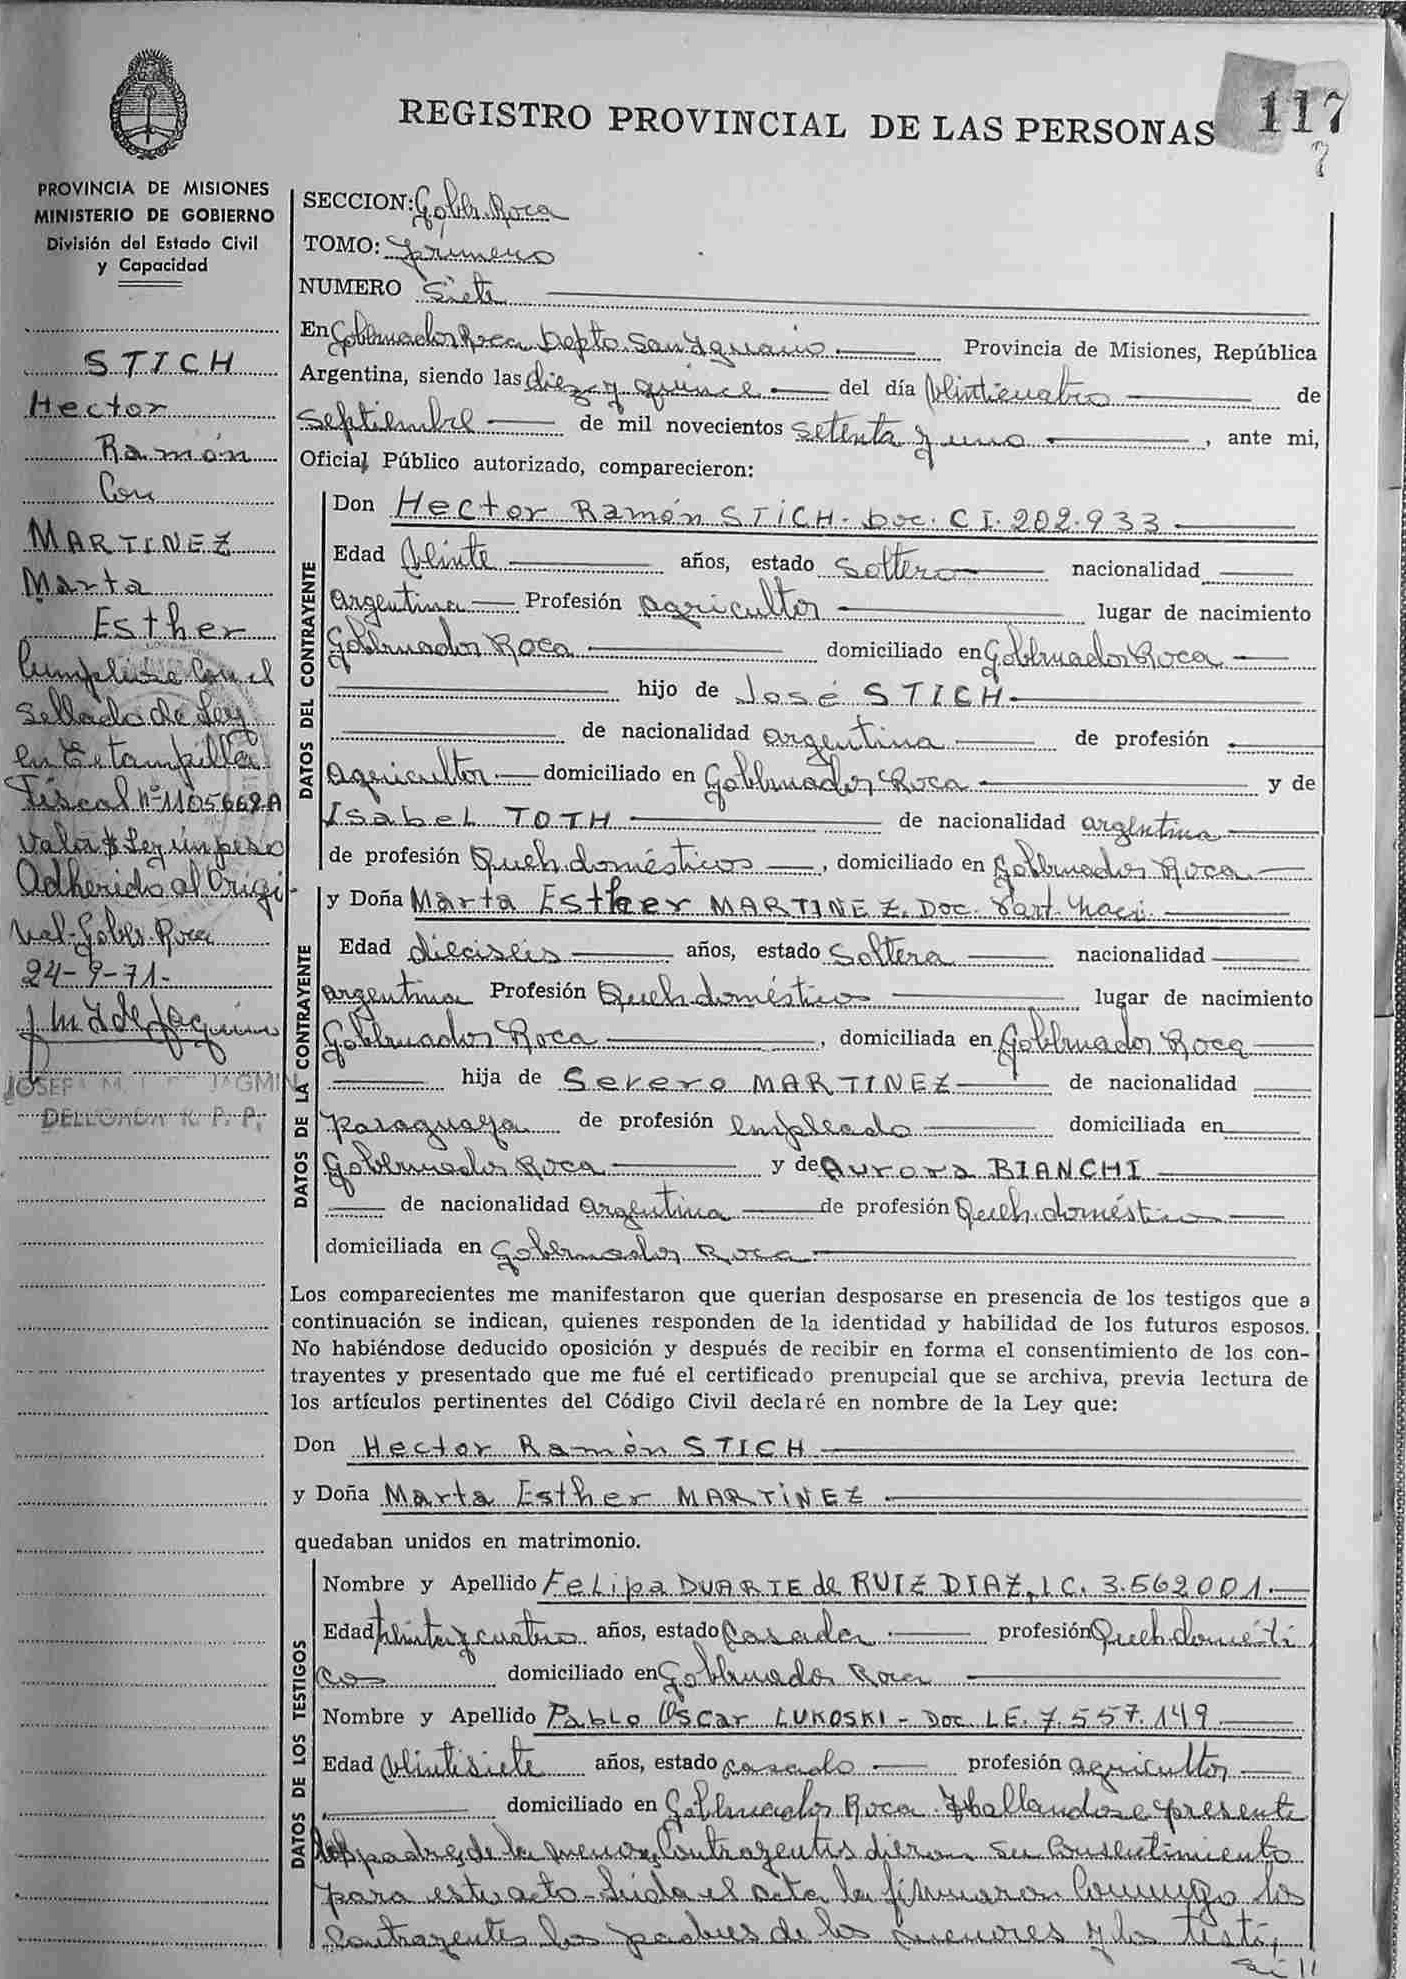 REGISTRO PROVINCIAL DE LAS PERSONAS
117
7
PROVINCIA DE MISIONES
MINISTERIO DE GOBIERNO
División del Estado Civil
y Capacidad
STICH
Hector
Ramón
Con
MARTINEZ
Marta
Esther
Cumplese con el
Sellado de Ley
en Estampilla
Fiscal nº 1105669A
Valor $ Ley un peso
Adherido al Origi-
nal-Gobr. Roca
24-9-71-
DELEGADA R. P. P.
SECCION: Gobr. Roca
TOMO: primero
NUMERO Siete
En Gobernador Roca Depto. San Ignacio Provincia de Misiones, República
Argentina, siendo las diez y quince del día veinticuatro de
Septiembre de mil novecientos setenta y uno , ante mi,
Oficial Público autorizado, comparecieron:
DATOS DEL CONTRAYENTE
Don Hector Ramón STICH- Doc. C I. 202.933
Edad veinte años, estado soltero nacionalidad
argentina Profesión agricultor lugar de nacimiento
Gobernador Roca domiciliado en Gobernador Roca
hijo de José STICH
de nacionalidad argentina de profesión
agricultor domiciliado en Gobernador Roca y de
Isabel TOTH de nacionalidad argentina
de profesión Queh. domésticos , domiciliado en Gobernador Roca
DATOS DE LA CONTRAYENTE
y Doña Marta Esther MARTINEZ. Doc. Part. Naci.
Edad dieciseis años, estado Soltera nacionalidad
argentina Profesión Queh. doméstico lugar de nacimiento
Gobernador Roca , domiciliada en Gobernador Roca
hija de Severo MARTINEZ de nacionalidad
paraguaya de profesión empleado domiciliada en
Gobernador Roca y de Aurora BIANCHI
de nacionalidad argentina de profesión Queh. doméstico
domiciliada en Gobernador Roca
Los comparecientes me manifestaron que querian desposarse en presencia de los testigos que a
continuación se indican, quienes responden de la identidad y habilidad de los futuros esposos.
No habiéndose deducido oposición y después de recibir en forma el consentimiento de los con-
trayentes y presentado que me fué el certificado prenupcial que se archiva, previa lectura de
los artículos pertinentes del Código Civil declaré en nombre de la Ley que:
Don Hector Ramón STICH
y Doña Marta Esther MARTINEZ
quedaban unidos en matrimonio.
DATOS DE LOS TESTIGOS
Nombre y Apellido Felipa DUARTE de RUIZ DIAZ, L C. 3.562001
Edad treinta y cuatro años, estado casada profesión Queh. domésti
cos domiciliado en Gobernador Roca
Nombre y Apellido Pablo Oscar LUKOSKI - Doc. L E. 7.557.149
Edad veintisiete años, estado casado profesión agricultor
domiciliado en Gobernador Roca. Hallandose presente
los padres de los menores Contrayentes dieron su Consentimiento
para este acto- Leida el acta la firmaron Conmigo los
Contrayentes los padres de los menores y los testi,